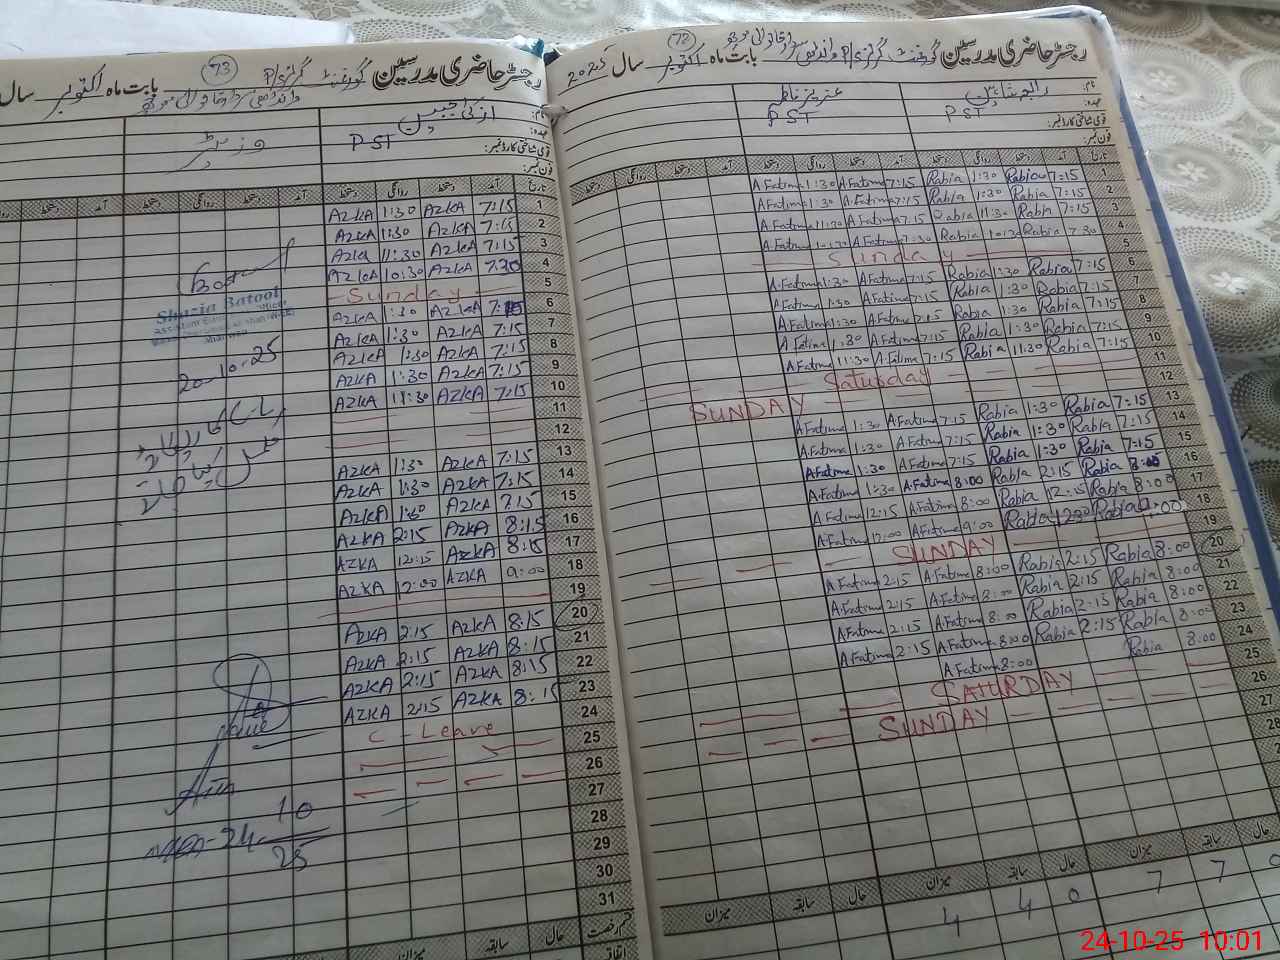 رجسٹر حاضری مدرسین گورنمنٹ گرلز P/S بابت ماہ اکتوبر سال 2025
72
نام:
عہدہ: PST PST
قومی شناختی کارڈ نمبر:
فون نمبر:
تاریخ آمد دستخط روانگی دستخط آمد دستخط روانگی دستخط آمد دستخط روانگی دستخط
1 7:15 Rabia 1:30 Rabia 7:15 A.Fatima 1:30 A.Fatima
2 7:15 Rabia 1:30 Rabia 7:15 A.Fatima 1:30 A.Fatima
3 7:15 Rabia 11:30 Rabia 7:15 A.Fatima 11:30 A.Fatima
4 7:30 Rabia 10:30 Rabia 7:30 A.Fatima 10:30 A.Fatima
5 Sunday
6 7:15 Rabia 1:30 Rabia 7:15 A.Fatima 1:30 A.Fatima
7 7:15 Rabia 1:30 Rabia 7:15 A.Fatima 1:30 A.Fatima
8 7:15 Rabia 1:30 Rabia 7:15 A.Fatima 1:30 A.Fatima
9 7:15 Rabia 1:30 Rabia 7:15 A.Fatima 1:30 A.Fatima
10 7:15 Rabia 11:30 Rabia 7:15 A.Fatima 11:30 A.Fatima
11 Saturday
12 SUNDAY
13 7:15 Rabia 1:30 Rabia 7:15 A.Fatima 1:30 A.Fatima
14 7:15 Rabia 1:30 Rabia 7:15 A.Fatima 1:30 A.Fatima
15 7:15 Rabia 1:30 Rabia 7:15 A.Fatima 1:30 A.Fatima
16 Rabia 2:15 Rabia 8:00 A.Fatima 1:30 A.Fatima
17 8:00 Rabia 12:15 Rabia 8:00 A.Fatima 12:15 A.Fatima
18 9:00 Rabia Rabia 9:00 A.Fatima 12:00 A.Fatima
19 SUNDAY
20 8:00 Rabia 2:15 Rabia 8:00 A.Fatima 2:15 A.Fatima
21 8:00 Rabia 2:15 Rabia 8:00 A.Fatima 2:15 A.Fatima
22 8:00 Rabia 2:15 Rabia 8:00 A.Fatima 2:15 A.Fatima
23 8:00 Rabia 2:15 Rabia 8:00 A.Fatima 2:15 A.Fatima
24 8:00 Rabia 8:00 A.Fatima
25 SATURDAY
26 SUNDAY
27
28
حال سابقہ میزان حال سابقہ میزان حال سابقہ میزان
0 7 7 0 4 4
رجسٹر حاضری مدرسین گورنمنٹ گرلز P/S بابت ماہ اکتوبر سال
73
نام:
عہدہ: PST
قومی شناختی کارڈ نمبر:
فون نمبر:
تاریخ آمد دستخط روانگی دستخط آمد دستخط روانگی دستخط آمد دستخط
1 7:15 AZKA 1:30 AZKA
2 7:15 AZKA 1:30 AZKA
3 7:15 AZKA 11:30 AZKA
4 7:30 AZKA 10:30 AZKA
5 Sunday
6 AZKA 1:30 AZKA
7 7:15 AZKA 1:30 AZKA
8 7:15 AZKA 1:30 AZKA
9 7:15 AZKA 1:30 AZKA
10 7:15 AZKA 11:30 AZKA
11
12
13 7:15 AZKA 1:30 AZKA
14 7:15 AZKA 1:30 AZKA
15 7:15 AZKA 1:30 AZKA
16 8:15 AZKA 2:15 AZKA
17 8:15 AZKA 12:15 AZKA
18 9:00 AZKA 12:00 AZKA
19
20 8:15 AZKA 2:15 AZKA
21 8:15 AZKA 2:15 AZKA
22 8:15 AZKA 2:15 AZKA
23 8:15 AZKA 2:15 AZKA
24 C - Leave
25
26
27
28
29
30
31
قسم رخصت حال سابقہ میزان
اتفاقیہ
Shazia Batool
20-10-25
24-10-25
24-10-25 10:01